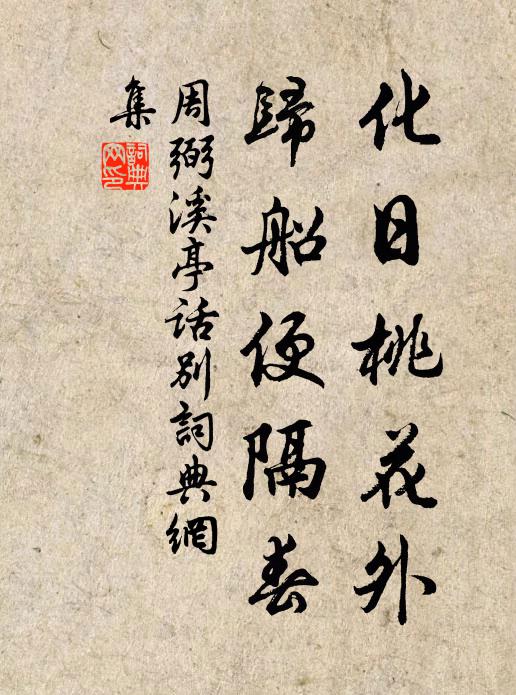 化日桃花外
歸船便隔春
周弼溪亭话别詞典網
集
詞典網印